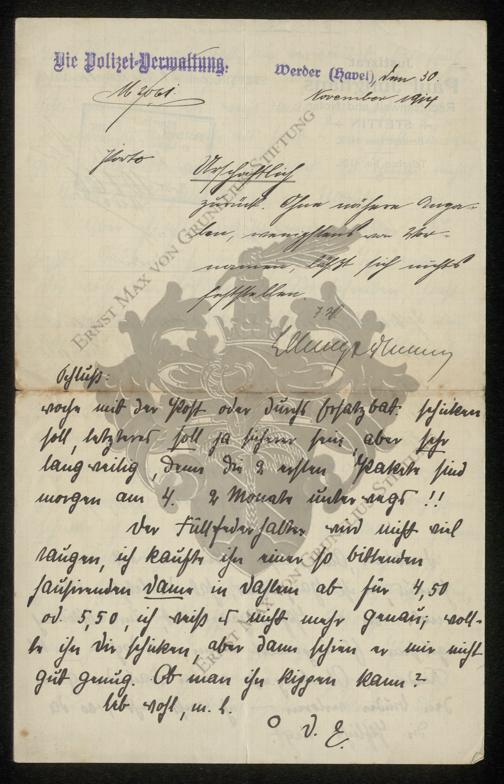 Die Polizei-Verwaltung.
Werder (Havel), den 30.
November 1914
Porto
Urschriftlich
zurück. Ohne nähere Anga-
ben, wenigstens von Vor-
namen, läßt sich nichts
feststellen.
Schluß:
woche mit der Post oder durchs Ersatzbat. schicken
soll, letzteres soll ja sicherer sein, aber sehr
langweilig, denn die 2 ersten Pakete sind
morgen am 4. 2 Monate unterwegs!!
Der Füllfederhalter wird nicht viel
taugen, ich kaufte ihn einer so bittenden
hausirenden Dame in Dahlem ab für 4,50
od. 5,50, ich weiß es nicht mehr genau, woll-
te ihn Dir schicken, aber dann schien er mir nicht
gut genug. Ob man ihn kippen kann?
Leb wohl, m. l.
ERNST MAX VON GRUNELIUS STIFTUNG
ERNST MAX VON GRUNELIUS STIFTUNG